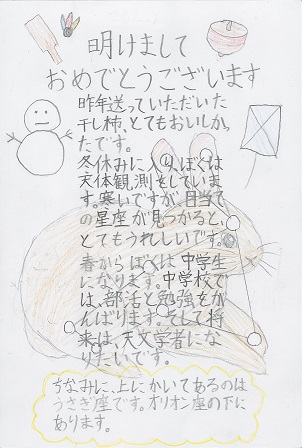 明けまして
おめでとうございます
昨年送っていただいた
干し柿、とてもおいしかっ
たです。
冬休みに入り、ぼくは
天体観測をしていま
す。寒いですが、目当て
の星座が見つかると、
とてもうれしいです。
春からぼくは中学生
になります。中学校で
は、部活と勉強をが
んばります。そして将
来は、天文学者にな
りたいです。
ちなみに、上にかいてあるのは
うさぎ座です。オリオン座の下に
あります。